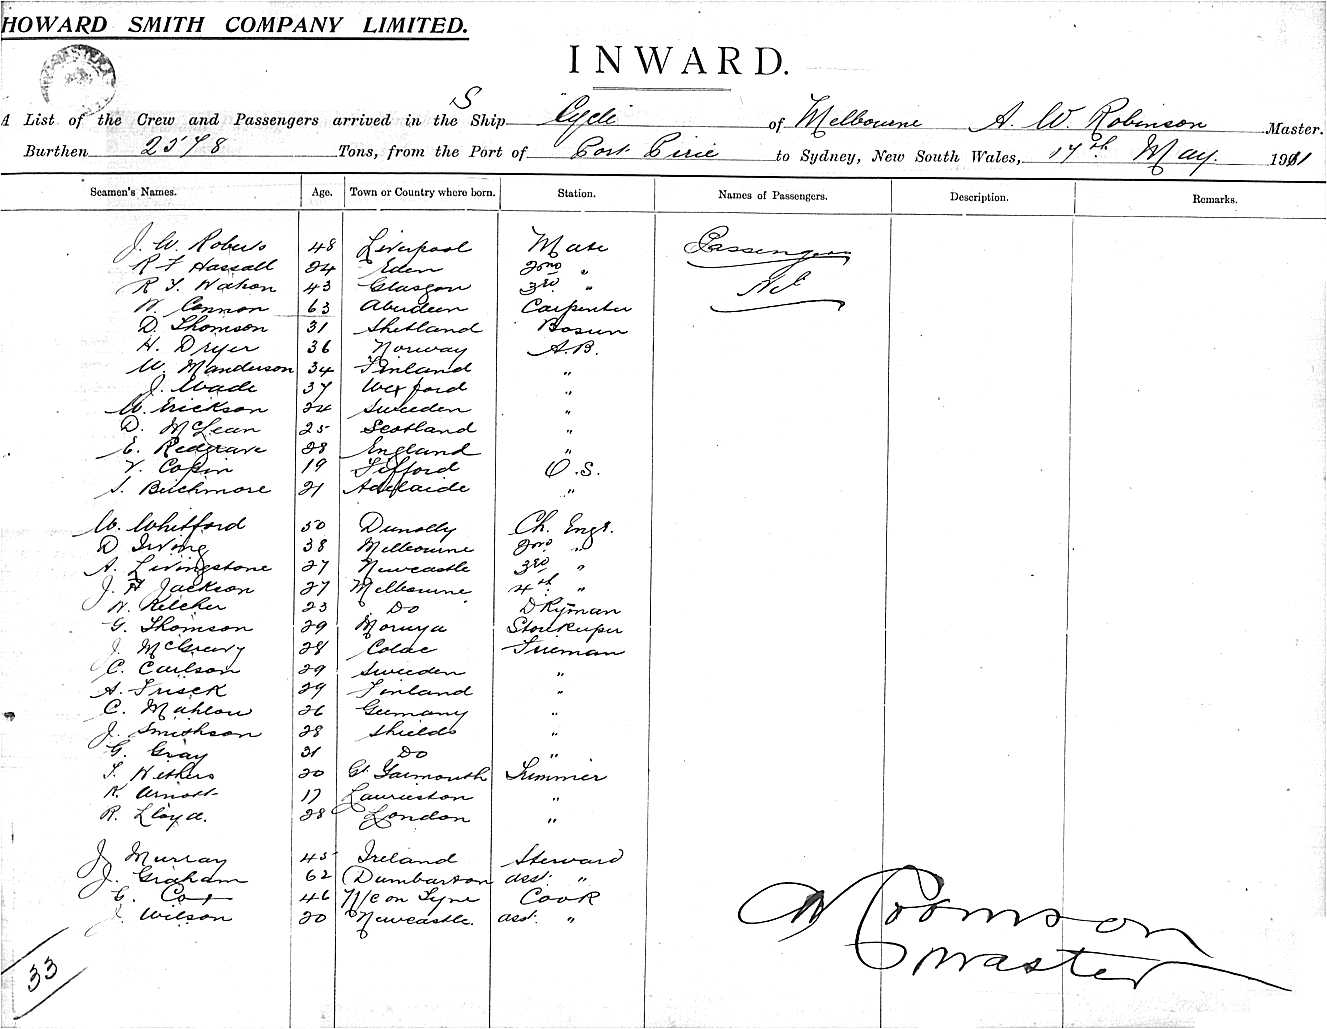 HOWARD SMITH COMPANY LIMITED.
INWARD.
A List of the Crew and Passengers arrived in the S Ship Cycle of Melbourne A. W. Robinson Master.
Burthen 2578 Tons, from the Port of Port Pirie to Sydney, New South Wales, 17th May. 1911
Seamen's Names. Age. Town or Country where born. Station. Names of Passengers. Description. Remarks.
J. W. Roberts 48 Liverpool Mate Passengers
R F Hassall 24 Eden 2nd " Nil
R. S. 43 Glasgow 3rd "
W. Connon 63 Aberdeen Carpenter
D. Thomson 31 Shetland Bosun
H. Dryer 36 Norway A.B.
W. Manderson 34 Finland "
J. Wade 37 Wexford "
W. Erickson 24 Sweeden "
D. McLean 25 Scotland "
E. Redgrave 28 England "
V. 19 O.S.
S. Buchmore 21 Adelaide "
W. Whitford 50 Dunolly Ch. Engr.
D Irving 38 Melbourne 2nd "
A. Livingstone 27 Newcastle 3rd "
J. H Jackson 27 Melbourne 4th "
W. Kelcher 23 Do DKyman
G. Thomson 29 Moruya Storekeeper
J. McGreevy 28 Colac Fireman
C. Carlson 29 Sweeden "
A. Frisck 29 Finland "
C. Mahlow 26 Germany "
J. Smithson 28 Shields "
G. Gray 31 Do "
S. Withers 20 Gt Yarmouth Trimmer
K. Arnott 17 Laurieston "
R. Lloyd. 28 London "
J. Murray 45 Ireland Steward
J. Graham 62 Dumbarton asst. "
C. Cox 46 N/c on Tyne Cook
J. Wilson 20 Newcastle. asst. "
33
A W Robinson
Master